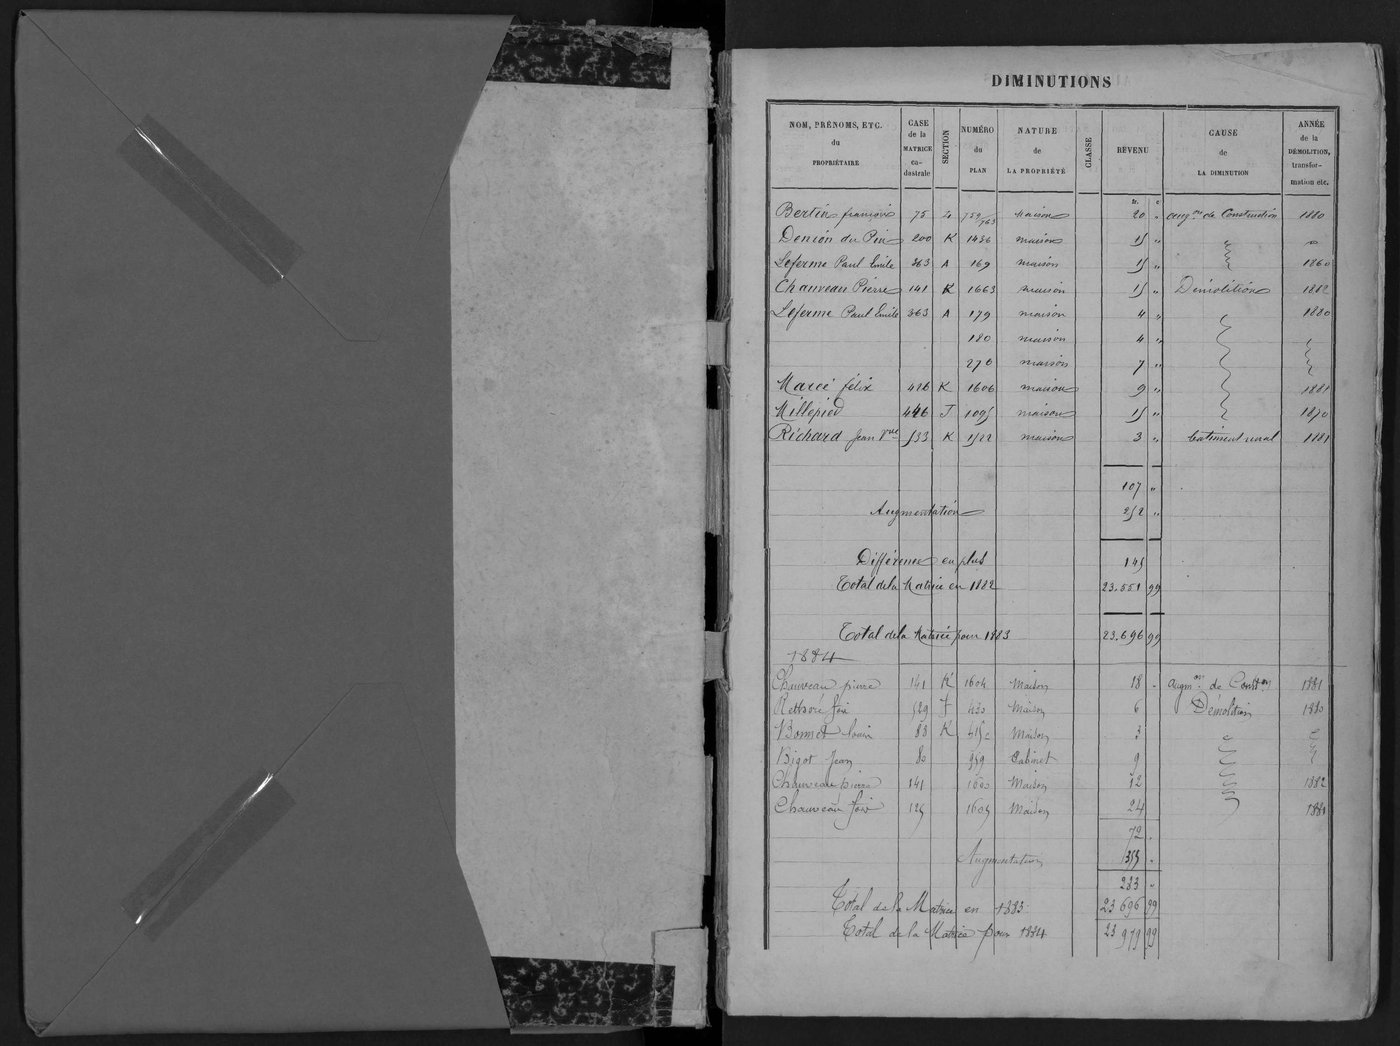 DIMINUTIONS
NOM, PRÉNOMS, ETC. du PROPRIÉTAIRE | CASE de la MATRICE ca- dastrale | SECTION | NUMÉRO du PLAN | NATURE de LA PROPRIÉTÉ | CLASSE | REVENU | CAUSE de LA DIMINUTION | ANNÉE de la DÉMOLITION, transfor- mation etc.
fr. c
Bertin françois 75 759/763 maison 20 " augm.on de Construction 1880
Denion du Pin 200 K 1436 maison 15 " " "
Leferme Paul Emile 363 A 169 maison 15 " 1860
Chauveau Pierre 141 K 1663 maison 15 " Démolition 1882
Leferme Paul Emile 363 A 179 maison 4 " 1880
180 maison 4 "
270 maison 7 "
Marcé félix 426 K 1606 maison 9 " 1881
Millepied 446 J 1095 maison 15 " 1870
Richard Jean Vve 533 K 1522 maison 3 " batiment rural 1881
107 "
Augmentation 252 "
Différence en plus 145
Total de la Matrice en 1882 23.551 99
Total de la Matrice pour 1883 23.696 99
1884
Chauveau pierre 141 K 1604 Maison 18 " augm.on de Constr.on 1881
Rethoré 529 J 420 Maison 6 Démolition 1880
Bonnet louis 88 K Maison 3 "
Bigot Jean 80 959 Cabinet 9
Chauveau pierre 141 1600 Maison 12 1882
Chauveau 125 1605 Maison 24 1881
72 "
Augmentation 355 "
283 "
Total de la Matrice en 1883 23 696 99
Total de la Matrice pour 1884 23 979 99